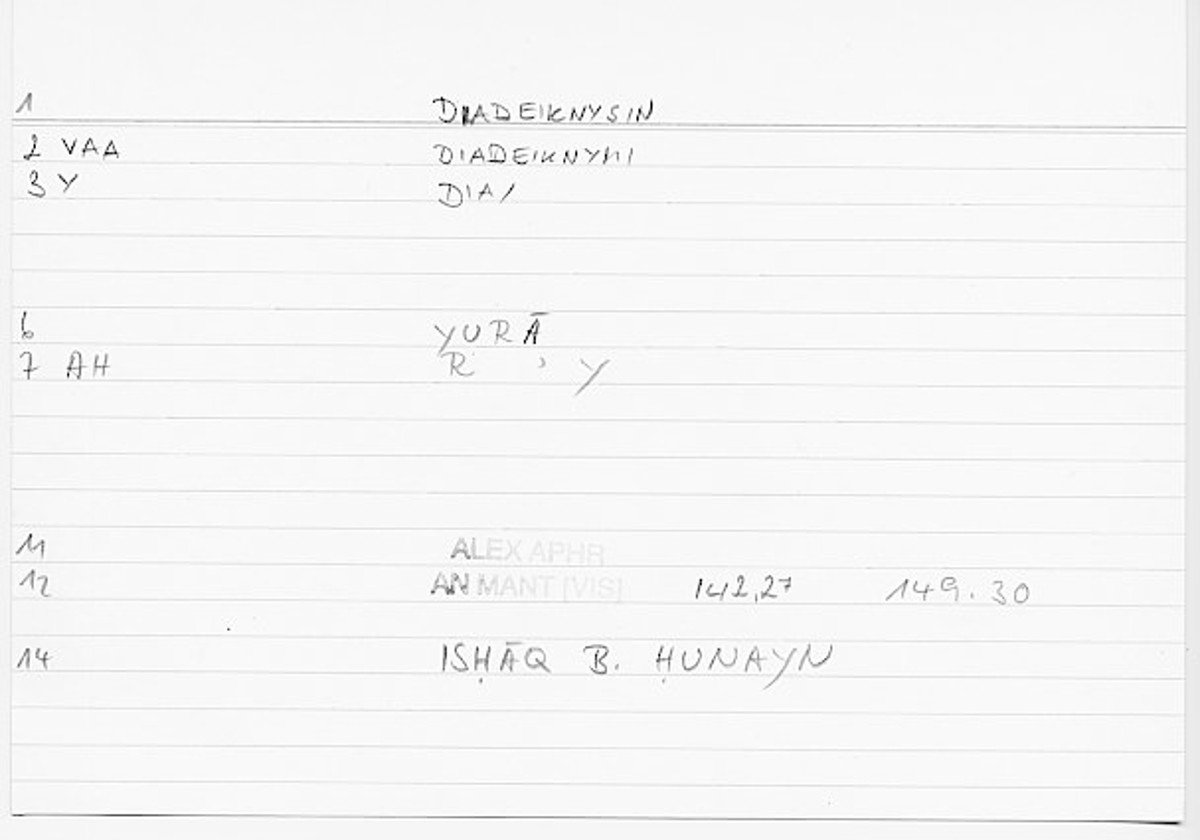 1 DIADEIKNYSIN
2 VAA DIADEIKNYMI
3 Y DIA/
6 YURĀ
7 AH R ʾ Y
11 ALEX APHR
12 AN MANT [VIS] 142,27 149.30
14 ISḤĀQ B. ḤUNAYN